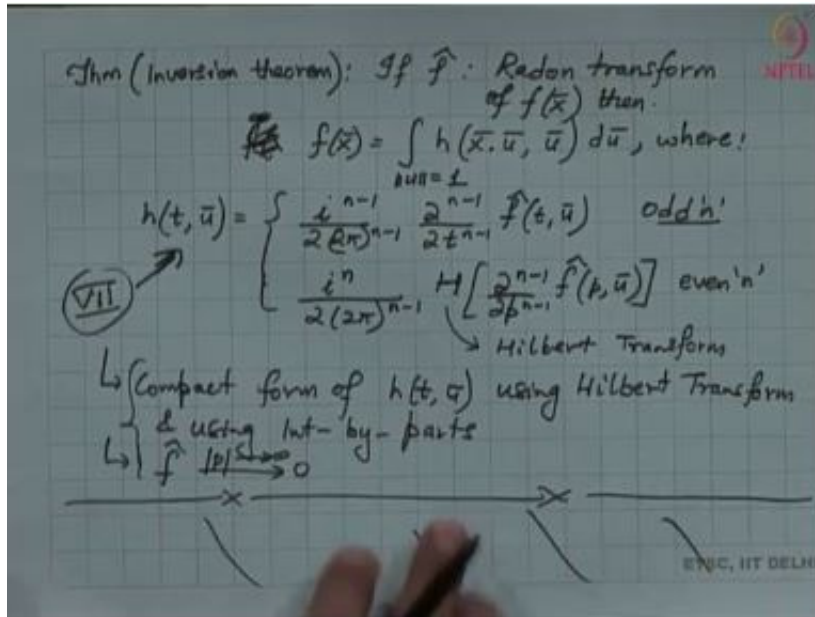 Thm (Inversion theorem): If f̂ : Radon transform
NPTEL
of f(x̄) then.
f(x̄) = ∫ h(x̄.ū, ū) dū, where:
||u|| = 1
h(t, ū) = { i^{n-1} / 2(2π)^{n-1} ∂^{n-1} / ∂t^{n-1} f̂(t, ū) odd 'n'
VII
i^n / 2(2π)^{n-1} H[ ∂^{n-1} / ∂p^{n-1} f̂(p, ū) ] even 'n'
↳ Hilbert Transform
↳ Compact form of h(t, ū) using Hilbert Transform
& using Int-by-parts
↳ f̂ |p|→∞ → 0
ETSC, IIT DELHI